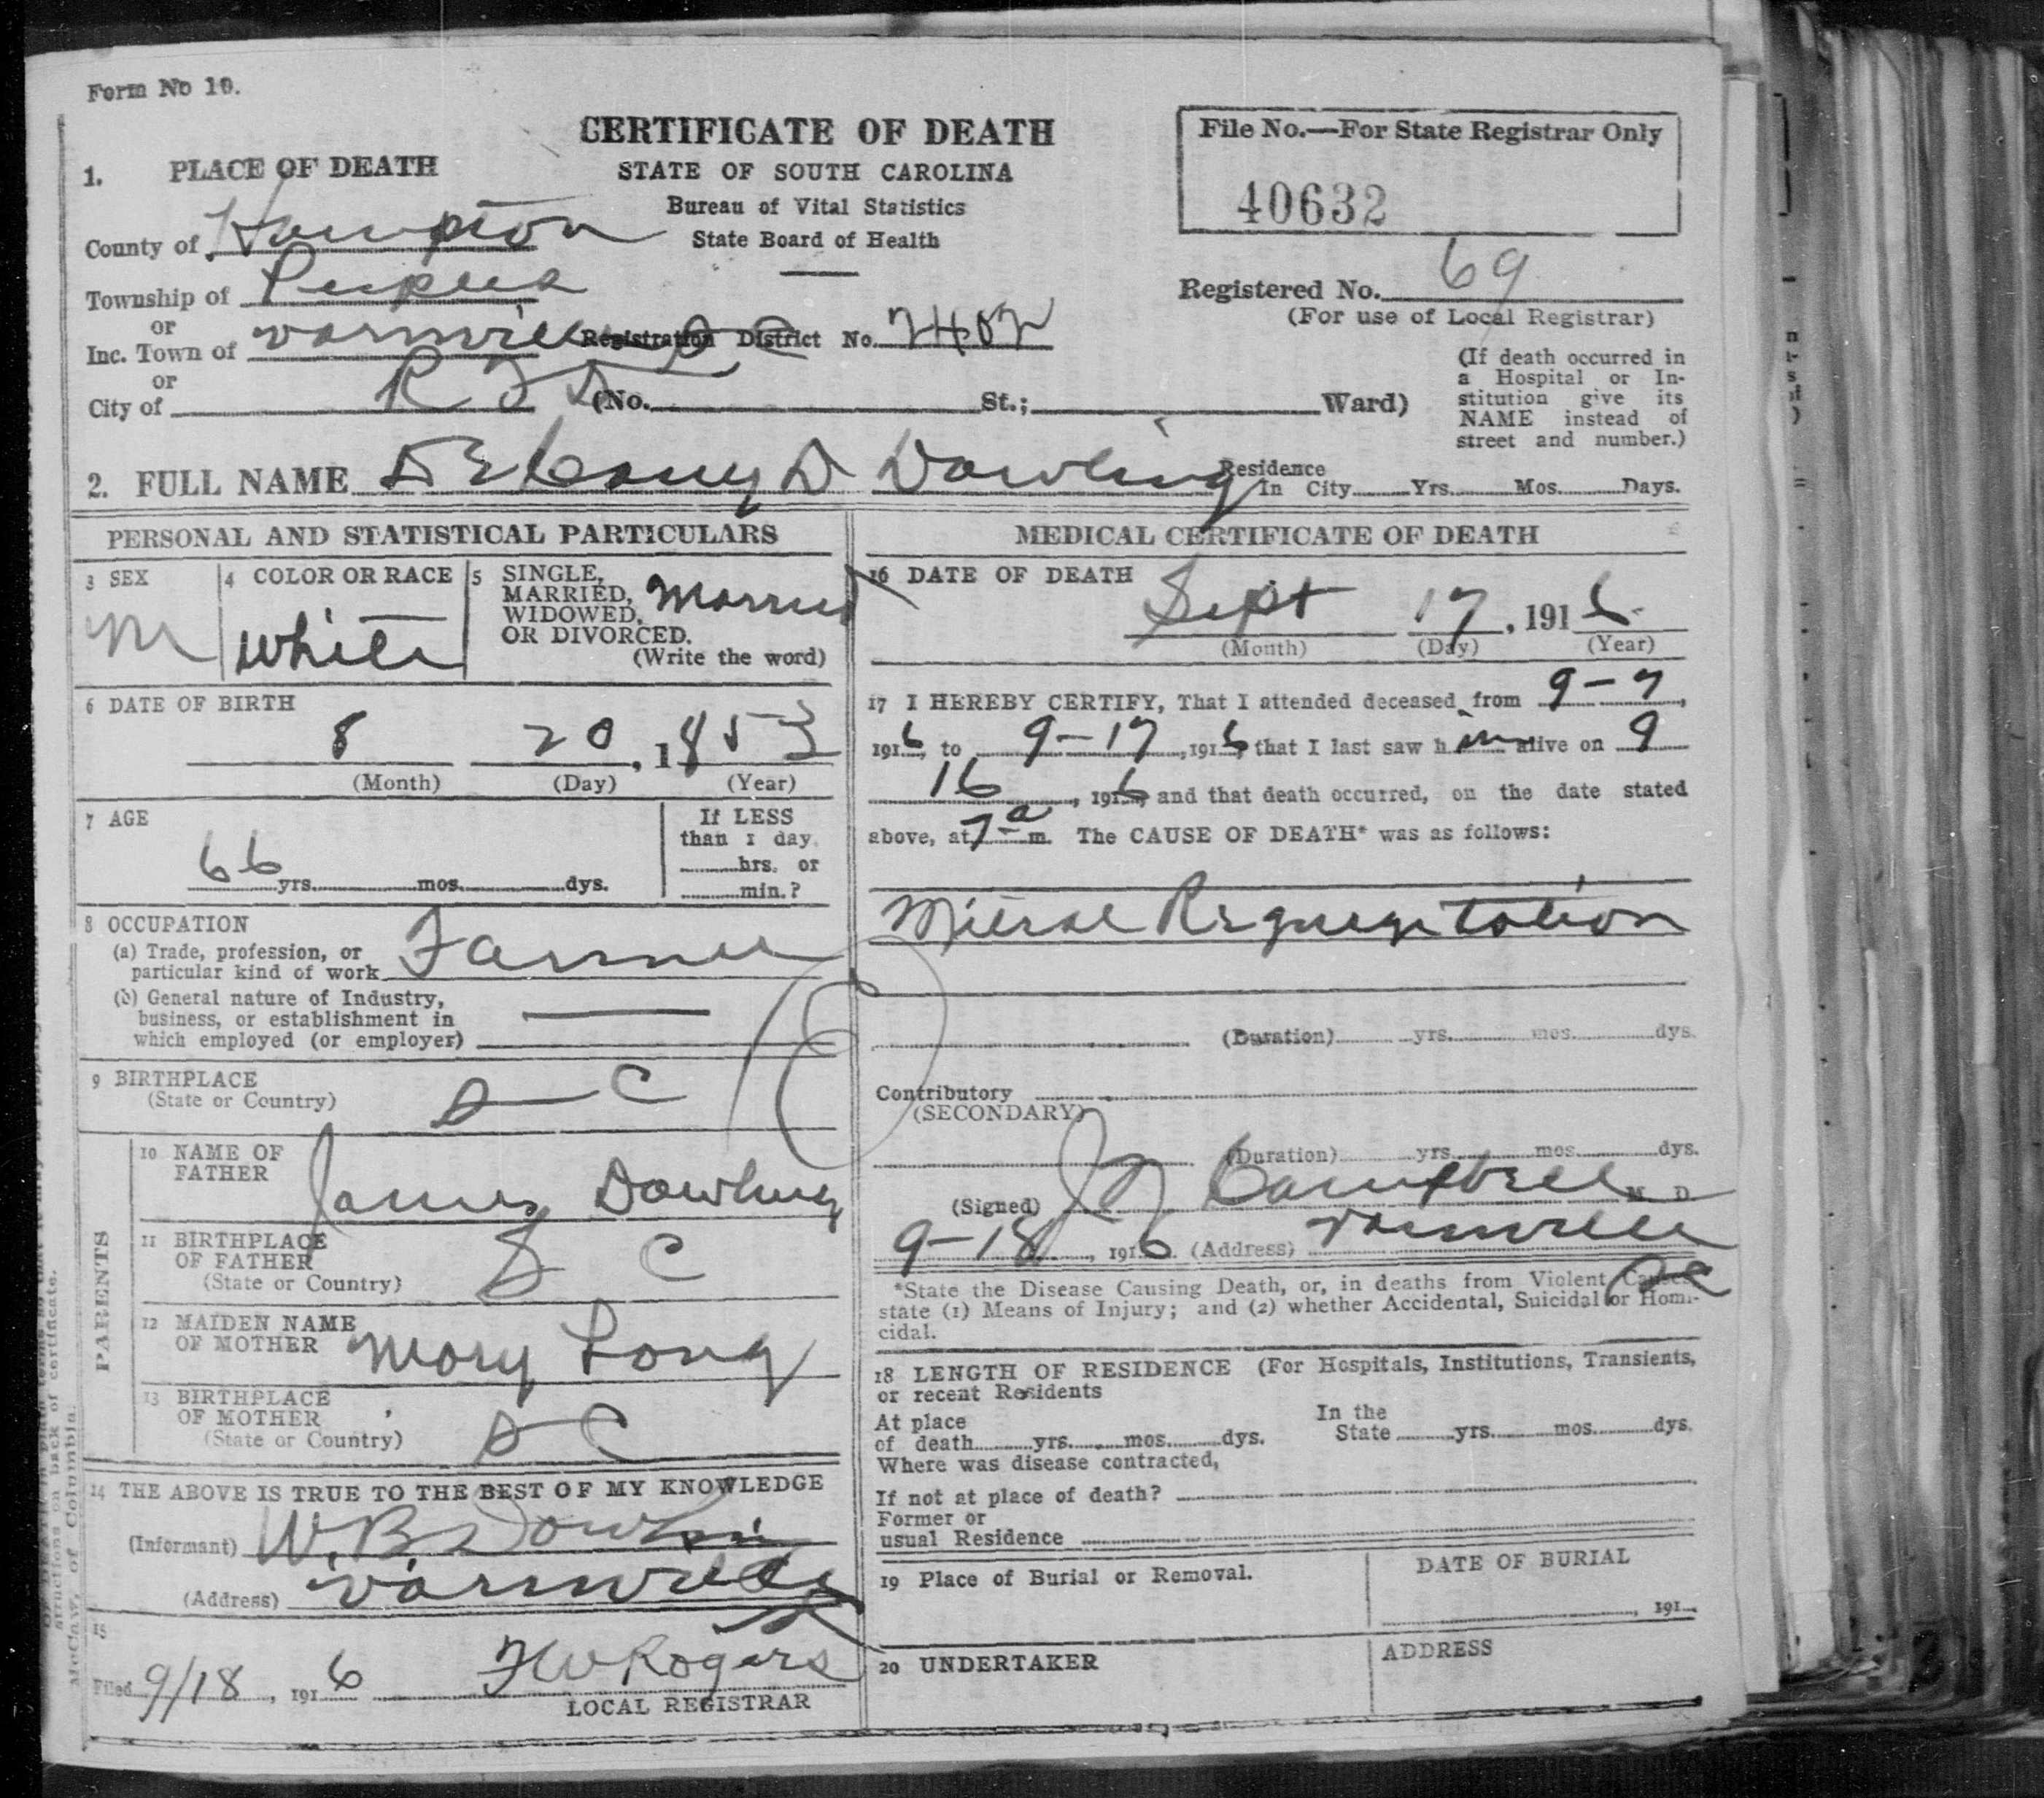 Form No 10.
CERTIFICATE OF DEATH
STATE OF SOUTH CAROLINA
Bureau of Vital Statistics
State Board of Health
File No.—For State Registrar Only
40632
1. PLACE OF DEATH
County of Hampton
Township of Peeples
or
Inc. Town of Varnville S C Registration District No. 2402
or
City of R F D (No. St.; Ward)
Registered No. 69
(For use of Local Registrar)
(If death occurred in
a Hospital or In-
stitution give its
NAME instead of
street and number.)
2. FULL NAME D Dowling Residence
In City Yrs. Mos. Days.
PERSONAL AND STATISTICAL PARTICULARS
3 SEX
M
4 COLOR OR RACE
White
5 SINGLE,
MARRIED,
WIDOWED,
OR DIVORCED.
(Write the word)
Married
6 DATE OF BIRTH
8 20, 1853
(Month) (Day) (Year)
7 AGE
66 yrs. mos. dys.
If LESS
than 1 day.
hrs. or
min.?
8 OCCUPATION
(a) Trade, profession, or
particular kind of work Farmer
(b) General nature of Industry,
business, or establishment in
which employed (or employer)
9 BIRTHPLACE
(State or Country) S C
PARENTS
10 NAME OF
FATHER
James Dowling
11 BIRTHPLACE
OF FATHER
(State or Country) S C
12 MAIDEN NAME
OF MOTHER Mary Long
13 BIRTHPLACE
OF MOTHER
(State or Country) S C
14 THE ABOVE IS TRUE TO THE BEST OF MY KNOWLEDGE
(Informant) W. B. Dowling
(Address) Varnville
15
Filed 9/18, 1916 F W Rogers
LOCAL REGISTRAR
MEDICAL CERTIFICATE OF DEATH
16 DATE OF DEATH
Sept 17, 1916
(Month) (Day) (Year)
17 I HEREBY CERTIFY, That I attended deceased from 9-7,
1916, to 9-17, 1916, that I last saw him alive on 9
16, 1916, and that death occurred, on the date stated
above, at 7 a m. The CAUSE OF DEATH* was as follows:
Mitral Regurgitation
(Duration) yrs. mos. dys.
Contributory
(SECONDARY)
(Duration) yrs. mos. dys.
(Signed) Campbell M. D.
9-18, 1916 (Address) Varnville
SC
*State the Disease Causing Death, or, in deaths from Violent Causes
state (1) Means of Injury; and (2) whether Accidental, Suicidal or Homi-
cidal.
18 LENGTH OF RESIDENCE (For Hospitals, Institutions, Transients,
or recent Residents
At place
of death yrs. mos. dys.
In the
State yrs. mos. dys.
Where was disease contracted,
If not at place of death?
Former or
usual Residence
19 Place of Burial or Removal.
DATE OF BURIAL
, 191
20 UNDERTAKER
ADDRESS
structions on back of certificate.
McCaw, of Columbia.